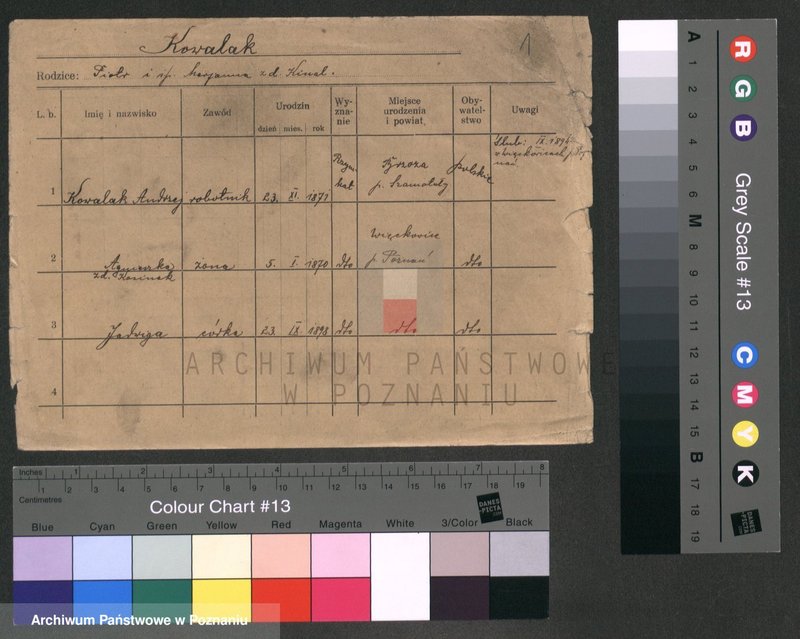 Kowalak
1
Rodzice: Piotr i zd. Kinal.
L. b. Imię i nazwisko Zawód Urodzin dzień mies. rok Wy-zna-nie Miejsce urodzenia i powiat Oby-watel-stwo Uwagi
Ślub: IX. 1896
w Więckowicach p. Poznań
1 Kowalak Andrzej robotnik 23. XI. 1871 Rzym kat polskie
p. Szamotuły
2 Agnieszka żona 5. I. 1870 dto Więckowice dto
zd. Kosinak p. Poznań
3 Jadwiga córka 23. IX. 1898 dto dto dto
4
ARCHIWUM PAŃSTWOWE
W POZNANIU
Inches 1 2 3 4 5 6 7 8
Centimetres 1 2 3 4 5 6 7 8 9 10 11 12 13 14 15 16 17 18 19
Colour Chart #13
DANES-PICTA.COM
Blue Cyan Green Yellow Red Magenta White 3/Color Black
Archiwum Państwowe w Poznaniu
R G B
Grey Scale #13
C M Y K
A 1 2 3 4 5 6 M 8 9 10 11 12 13 14 15 B 17 18 19
DANES-PICTA.COM